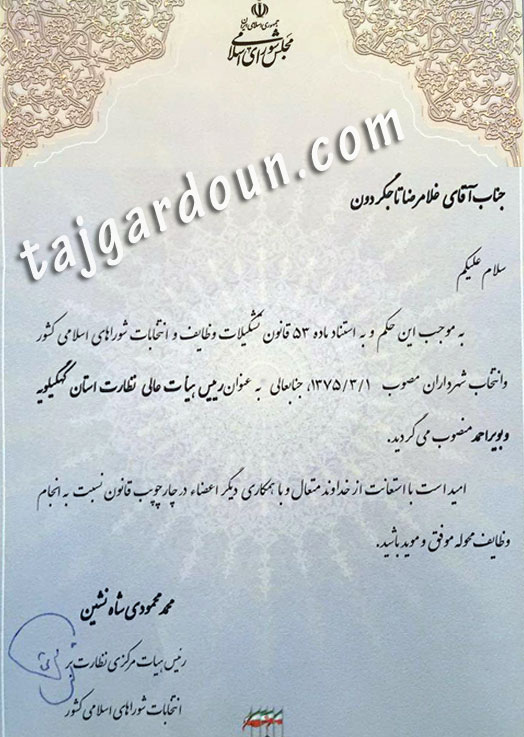 جمهوری اسلامی ایران
مجلس شورای اسلامی
tajgardoun.com
جناب آقای غلامرضا تاجگردون
سلام علیکم
به موجب این حکم و به استناد ماده ۵۳ قانون تشکیلات وظایف و انتخابات شوراهای اسلامی کشور
وانتخاب شهرداران مصوب ۱۳۷۵/۳/۱، جنابعالی به عنوان رییس هیأت عالی نظارت استان کهگیلویه
و بویراحمد منصوب می گردید.
امید است با استعانت از خداوند متعال و با همکاری دیگر اعضاء در چارچوب قانون نسبت به انجام
وظایف محوله موفق و موید باشید.
محمد محمودی شاه نشین
رئیس هیات مرکزی نظارت بر
انتخابات شوراهای اسلامی کشور